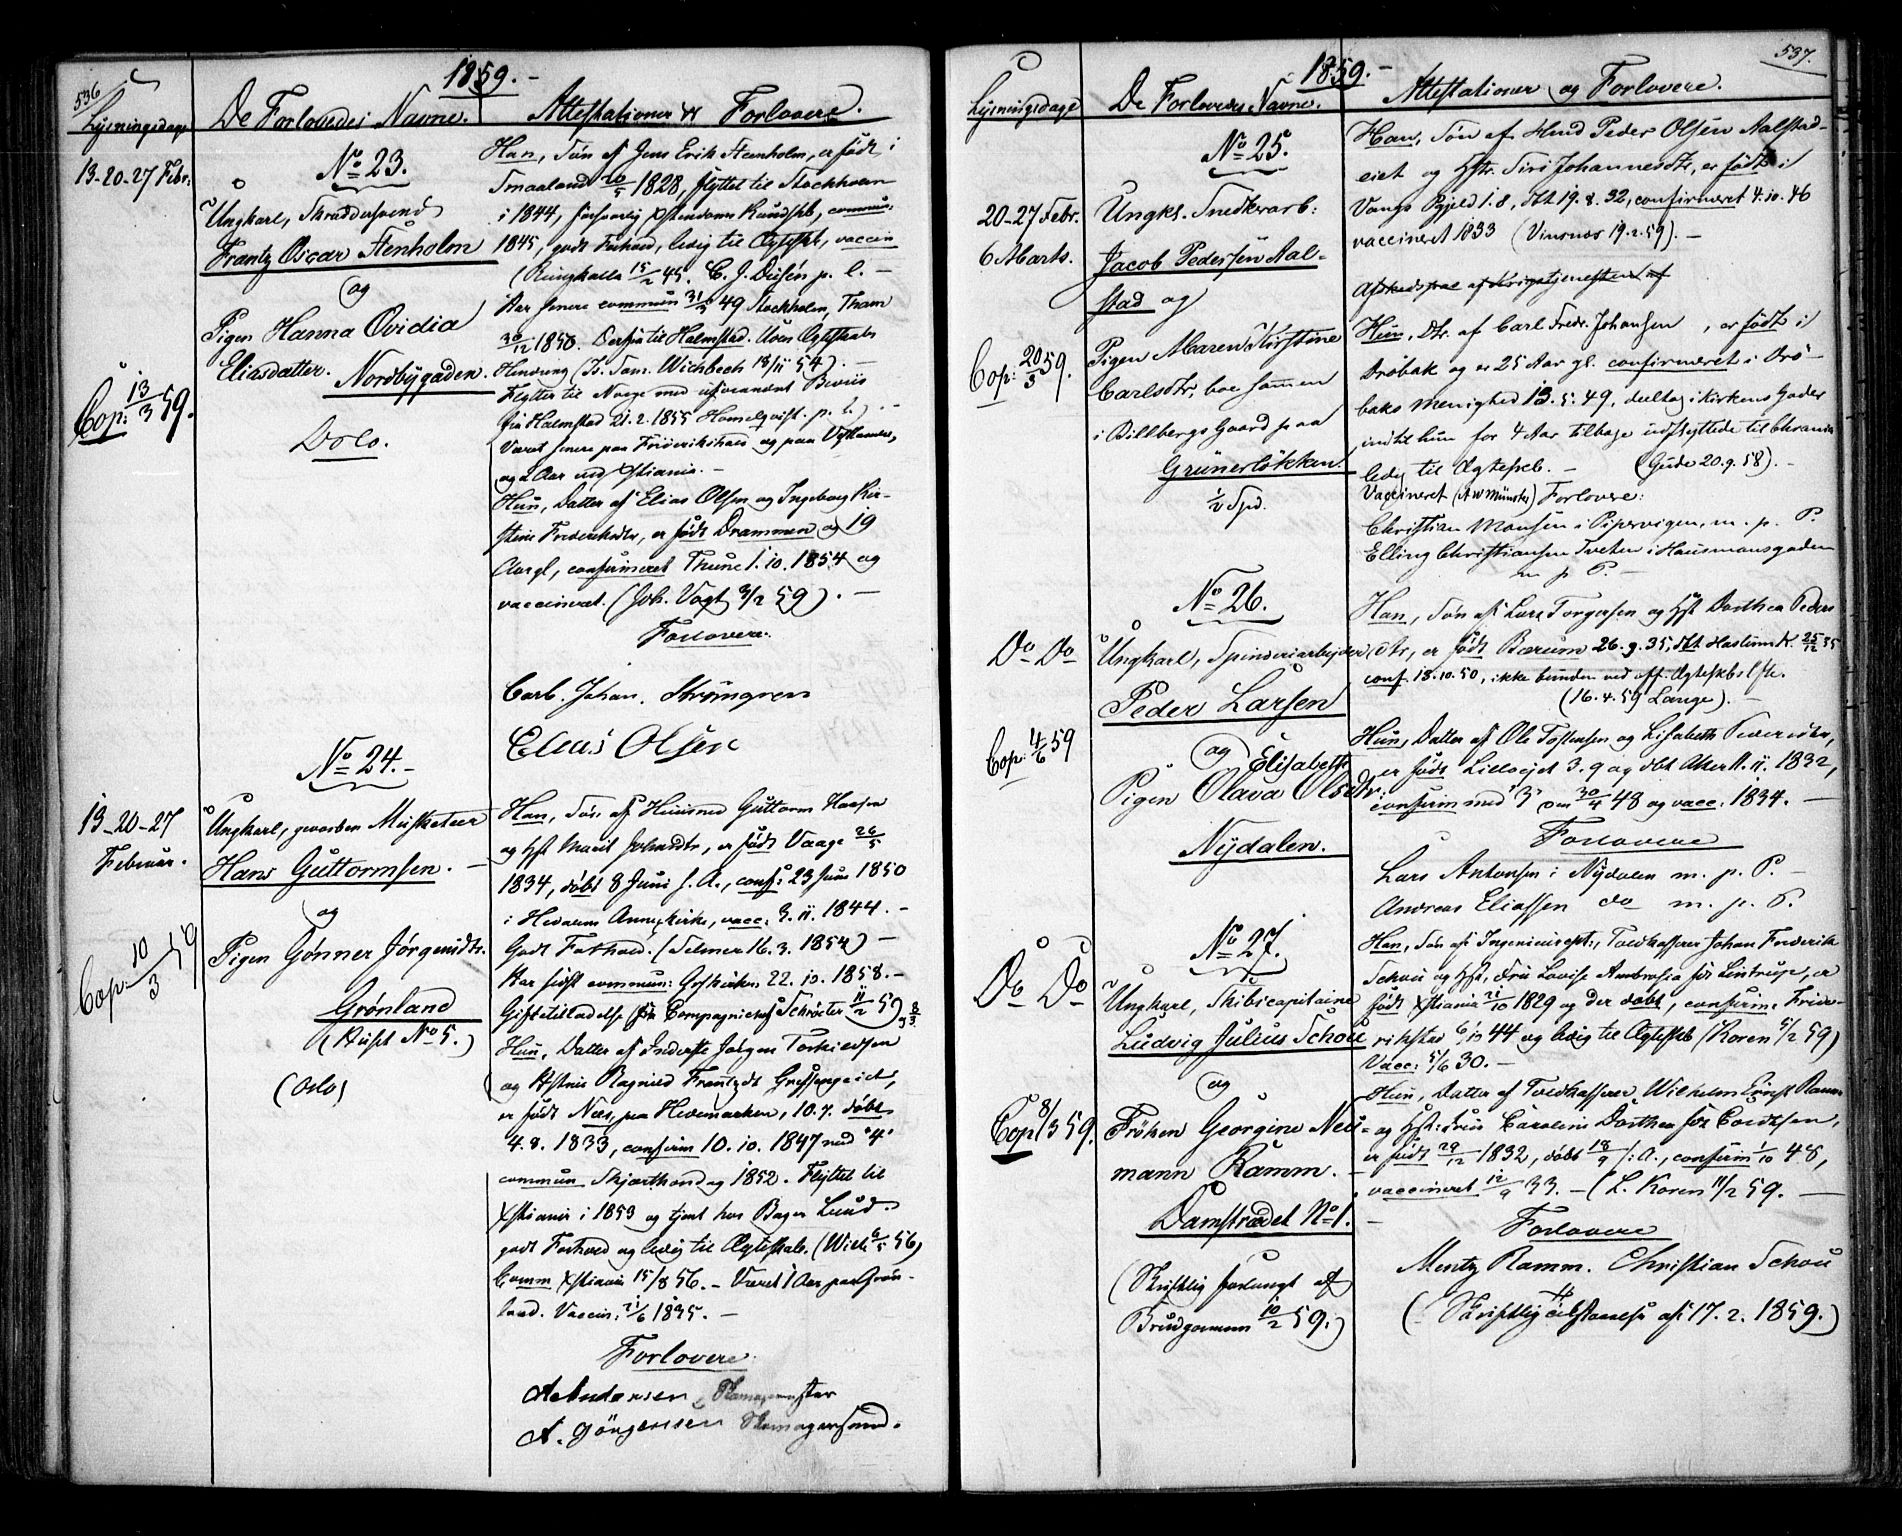 536
1859.
Lysningsdage
De Forlovedes Navne.
Attestationer og Forlovere.
13-20-27 Febr:
No 23.
Ungkarl, Skræddersvend
Frantz Oscar Stenholm
og
Pigen Hanna Ovidia
Eliasdatter. Nordbygaden.
Cop: 13/3 59.
Oslo.
Han, Søn af Jens Erik Stenholm, er født i
Smaaland 20/5 1828, flyttet til Stockholm
i 1844, forsvarlig Xstendoms Kundskb, commun:
1845, godt Forhold, ledig til Ægteskb, vaccin
(15/2 45. C. J. p. l. –
Har senere commun 49 Stockholm,
30/12 1850. til Halmstad. Uden Ægteskabs
Hindring (Wichbech 18/11 54). –
Flyttet til Norge med Beviis
fra Halmstad 21.2.1855 p. l.) –
Været senere paa Frideriskshald og paa
og 2 Aar ved Xstiania. –
Hun, Datter af Elias Olsen og Ingeborg Kir-
stine er født Drammen og 19
Aar gl, confirmeret Thune 1.10.1854 og
vaccineret. (Joh. Vogt 3/2 59). –
Forlovere:
Carl Johan Strömgren
Elias Olsen
13-20-27
Februar.
No 24. –
Ungkarl, Musketeer
Hans Guttormsen. –
og
Pigen Gønner Jørgensdtr.
Grønland
(Huset No 5.)
(Oslo)
Cop: 10/3 59
Han, Søn af Huusmd Guttorm Hansen
og Hst Marit er født Vaage 26/5
1834, døbt 8 Juni s. A., conf: 23 Juni 1850
i Hedalens Annexkirke, vacc. 3.11.1844. –
Godt Forhold. (Selmer 16.3.1854) –
Har sidst commun: 22.10.1858. –
Giftetilladelse fra Compagnichef Schröeter 11/2 59) 8/3
Hun, Datter af Inderste Jørgen Torkildsen
og Hstru Ragnild
er født Næs, paa Hedemarken, 10.7. døbt
4.8.1833, confirm 10.10.1847 med "4"
commun og 1852. Flyttet til
Xstiania i 1853 og tjent hos Bager Lund.
godt Forhold og ledig til Ægteskab. (6/5 56)
Comm Xstiania 15/8 56. – Været 1 Aar paa Grøn-
land. Vaccin: 21/6 1835. –
Forlovere:
Andersen
A. Jörgensen Skomagersvend.
537.
1859. –
Lysningsdage
De Forlovedes Navne.
Attestationer og Forlovere.
20-27 Febr.
6 Marts.
No 25.
Ungk. Snedkerarb:
Jacob Pedersen Aal-
stad og
Pigen Maren Kirstine
Carlsdtr, boe sammen
i Billbergs Gaard paa
Grünerløkken.
1/2 Spd.
Cop: 20/3 59.
Han, Søn af Peder Olsen Aalstad-
eiet og Hstr. Siri Johannesdtr, er født i
Vangs Pgjeld 1.8, dbt 19.8.32, confirmeret 4.10.46
vaccineret 1833 (Vinsnes 19.2.59). –
Afskedspas af Krigstjenesten af
Hun, Dtr. af Carl Fredr. Johansen, er født i
Drøbak og er 25 Aar gl. confirmeret i Drø-
baks Menighed 13.5.49, deeltog i Kirkens Goder
indtil hun for 4 Aar tilbage udflyttede til Chrania
ledig til Ægteskb. – (Gude 20.9.58). –
Vaccineret (A W Münster) Forlovere:
Christian Monsen i Pipervigen, m. p. P.
Elling Christiansen Tveten i Hausmansgaden
m p P. –
No 26.
Do Do
Ungkarl, Spinderiarbejder
Peder Larsen
og Elisabeth
Pigen Olava Olsdtr:
Nydalen.
Cop: 4/6 59
Han, Søn af Lars Torgersen og Hst Dorthea Peders
dtr, er født Bærum 26.9.35, dbt Haslum K. 25/12 35
conf. 18.10.50, ikke bunden ved off. Ægteskbslfte.
(16.4.59 Lange). –
Hun, Datter af Ole Tostensen og Lisabeth
er født Lilloejet 3.9 og dbt Aker 11.11.1832,
confirm med 3 den 30/4 48 og vacc: 1834. –
Forlovere
Lars Antonsen i Nydalen m. p. P. –
Andreas Eliassen do m. p. P.
No 27.
Do Do
Ungkarl, Skibscapitaine
Ludvig Julius Schou
og
Frøken Georgine Neu-
mann Ramm. –
Damstrædet No 1. –
(Skriftlig forlangt af
Brudgommen 10/2 59.)
Cop 8/3 59.
Han, Søn af Toldkasserer Johan Frederik
Schou og Hst. Fru Lovise Ambrosia fød Lintrup, er
født Xstiania 21/10 1829 og der døbt, confirm. Fride-
rikstad 6/10 44 og ledig til Ægteskb (Koren 5/2 59)
Vacc: 5/6 30. –
Hun, Datter af Toldkasserer Wilhelm Ernst Ramm
og Hst: Fru Caroline Dorthea fød
er født 29/12 1832, døbt 18/9 s: A., confirm 1/10 48,
vaccineret 12/9 33. – (L. Koren 11/2 59. –
Forlovere
Mentz Ramm. Christian Schou
(Skriftlig tilstaaelse af 17.2.1859.)